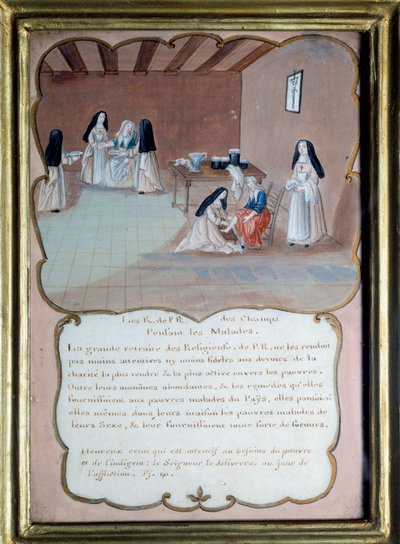 Les R. de P. R. des Champs
Pensant les Malades.
La grande retraite des Religieuse. de P.R. ne les rendoit
pas moins attentives ny moins fideles aux devoirs de la
charité la plus tendre & la plus active envers les pauvres.
Outre leurs aumônes abondantes, & les remedes qu'elles
fournissoient aux pauvres malades du Païs, elles pansoient
elles mêmes dans leurs maison les pauvres malades de
leurs Sexe, & leur fournissoient toute sorte de secours.
Heureux celui qui est attentif au besoins du pauvre
et de l'indigent: le Seigneur le delivrera au jour de
l'affliction. Ps. 40.